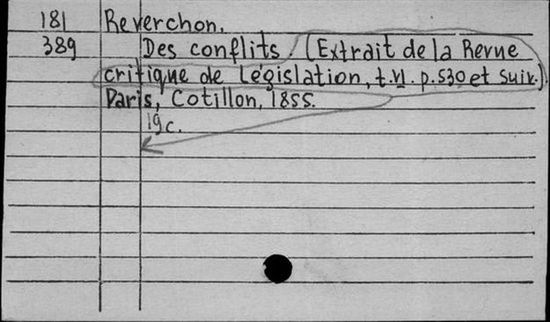 181 Reverchon.
389 Des conflits (Extrait de la Revue
critique de Législation, t.VI. p.530 et suiv.).
Paris, Cotillon, 1855.
19c.